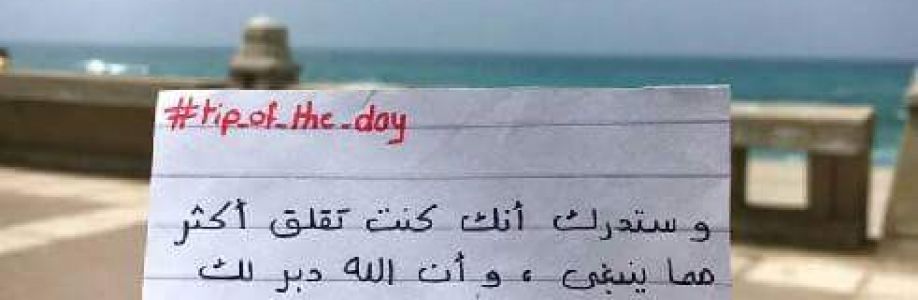 #tip_of_the_day
وستدرك أنك كنت تقلق أكثر
مما ينبغي ، وأن الله دبر لك